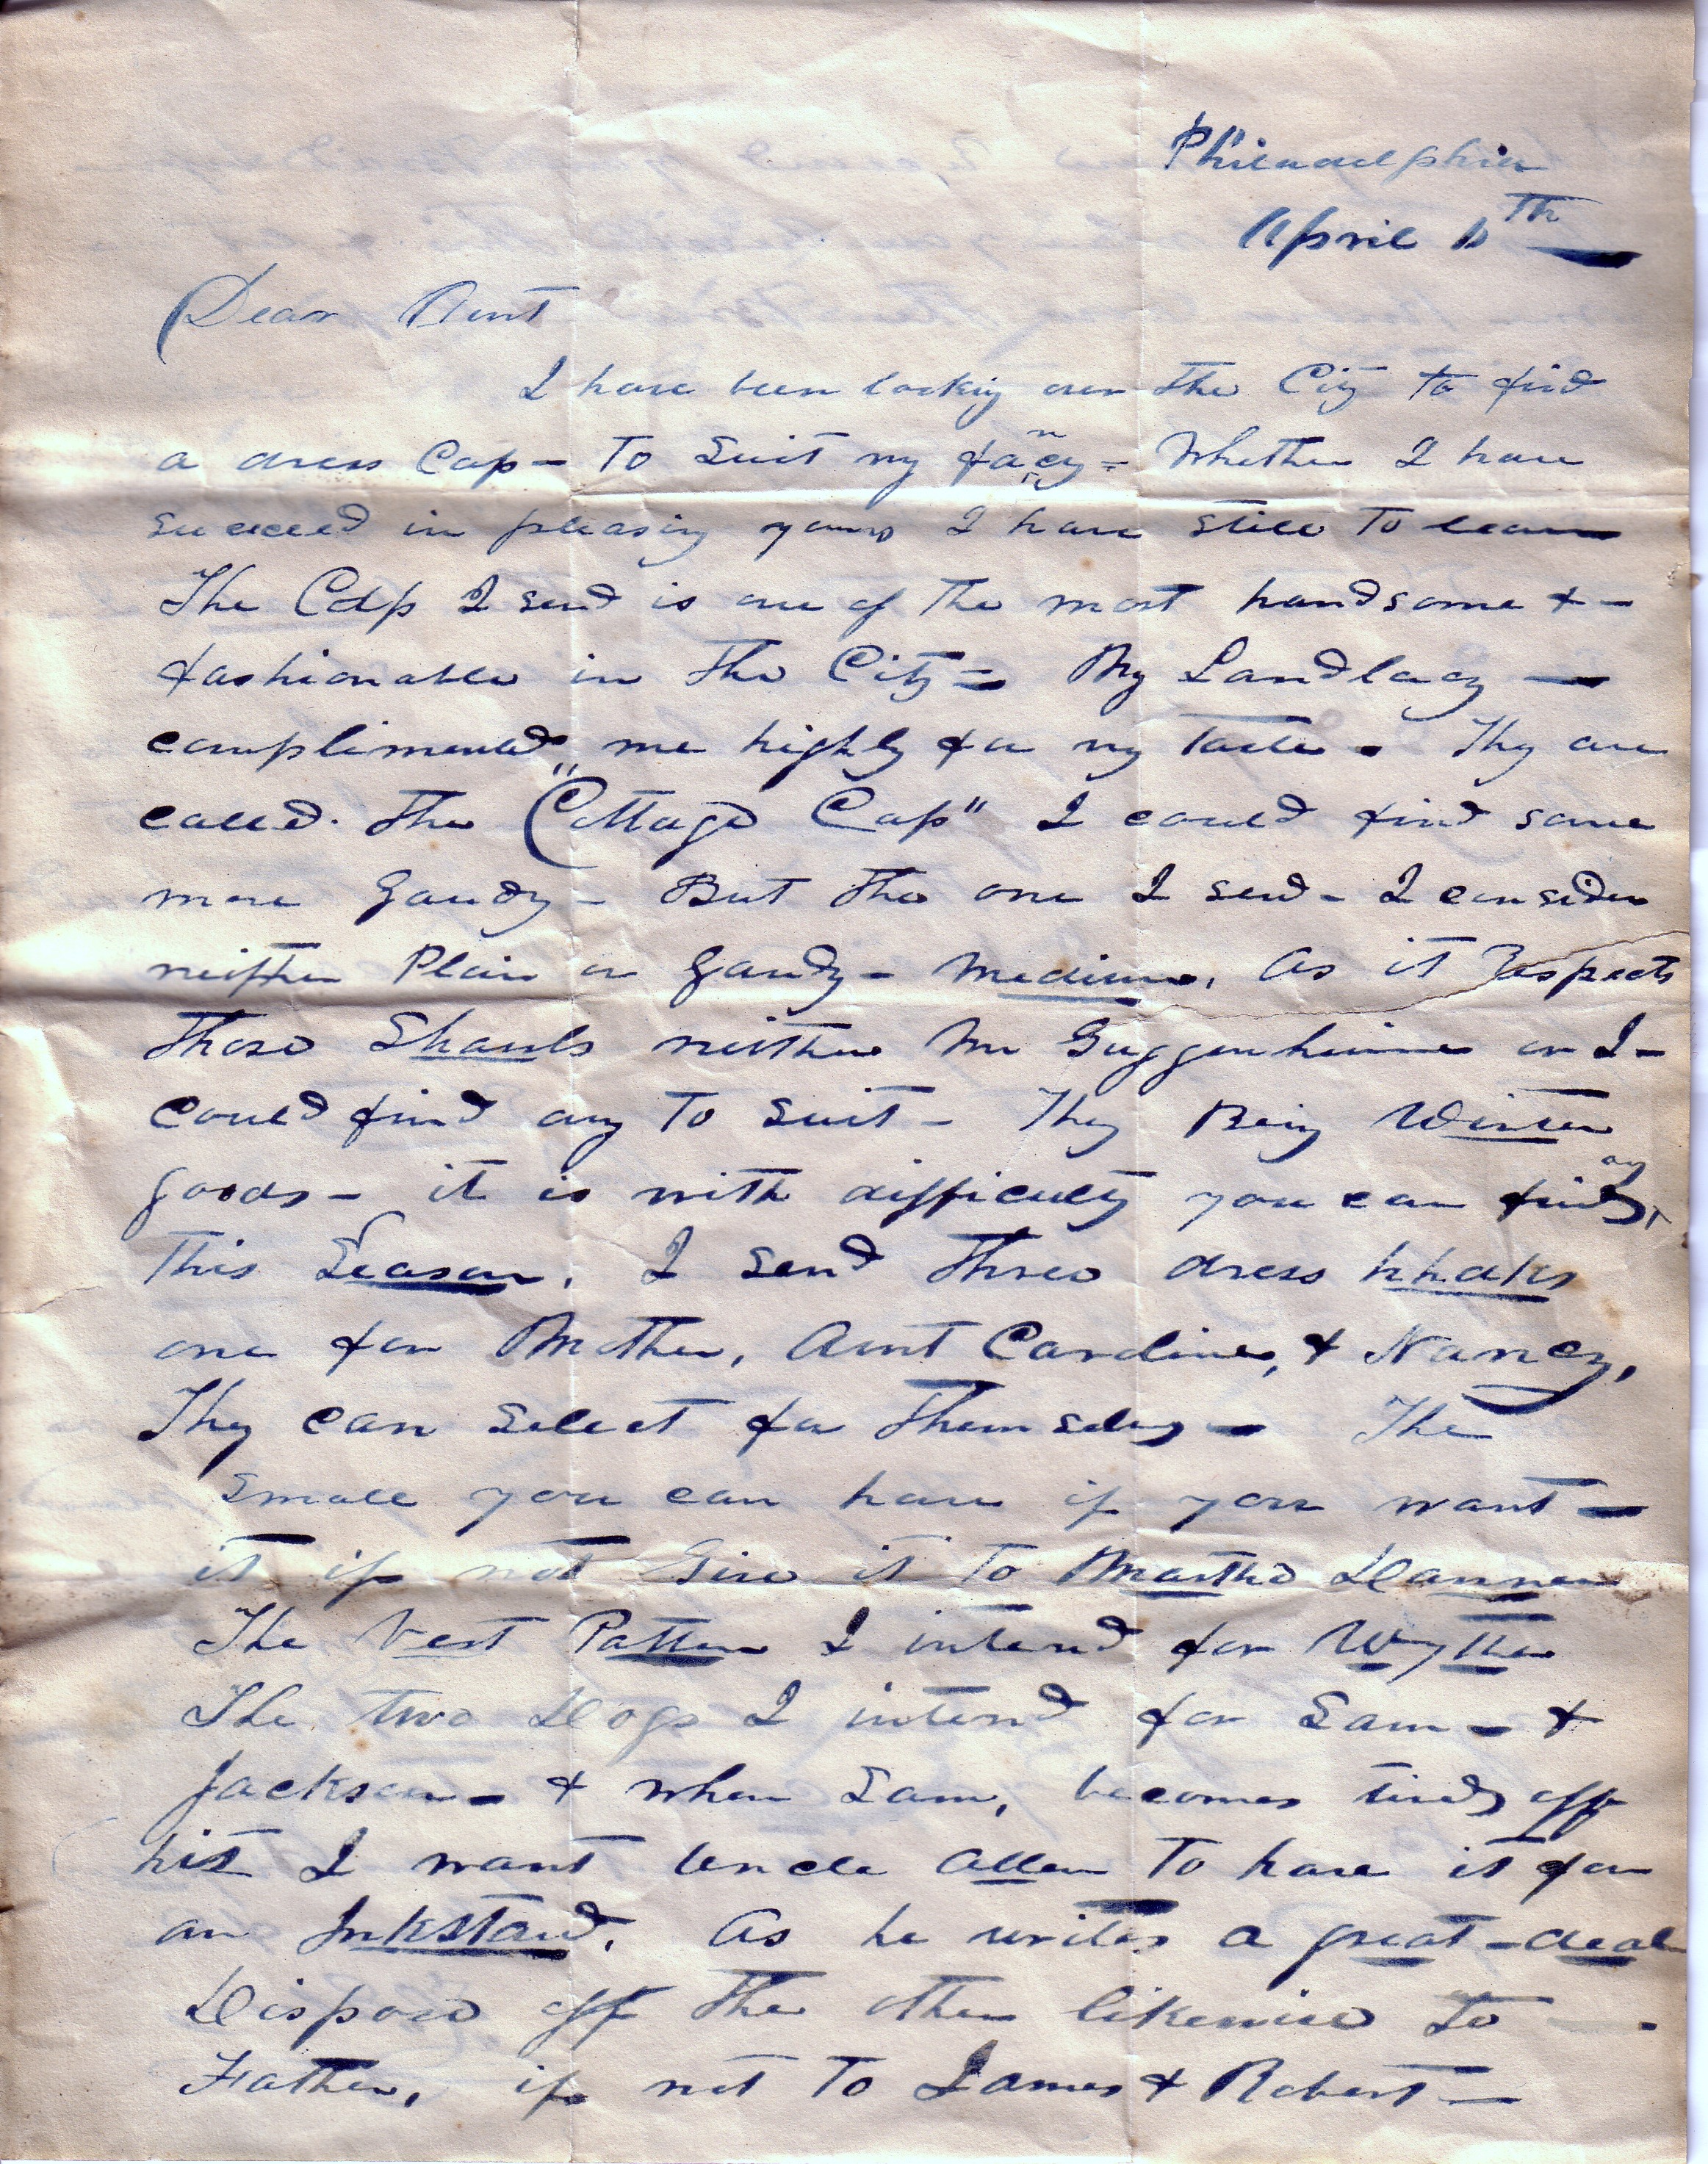 Philadelphia
April 10th
Dear Aunt
I have been lookig over the City to find
a dress Cap - To Suit my fancy - Whether I have
succeed in pleasing yours I have still To learn
The Cap I send is one of the most handsome & -
fashionable in the City - My Landlady -
complimented me highly for my taste - They are
called. the "Cottage Cap" I could find some
more Gaudy - But the one I send - I consider
neither Plain or Gaudy - medium. As it respects
those Shawls neither Mr Guggenheime or I -
could find any To Suit - They Being Winter
goods - it is with difficulty you can find any
this Season. I send three dress
one for Mother, Aunt Caroline, & Nancy,
They can select for themselves - The
Small you can have if you want -
it if not Give it to Martha Danner
The Vest Pattern I intend for Wythe
The two Dogs I intend for Sam - &
Jackson - & when Sam, becomes tired off
his I want Uncle Allen To have it for
an Inkstand. As he writes a great - deal
Dispose off the other likewise To -
Father, if not To James & Robert -